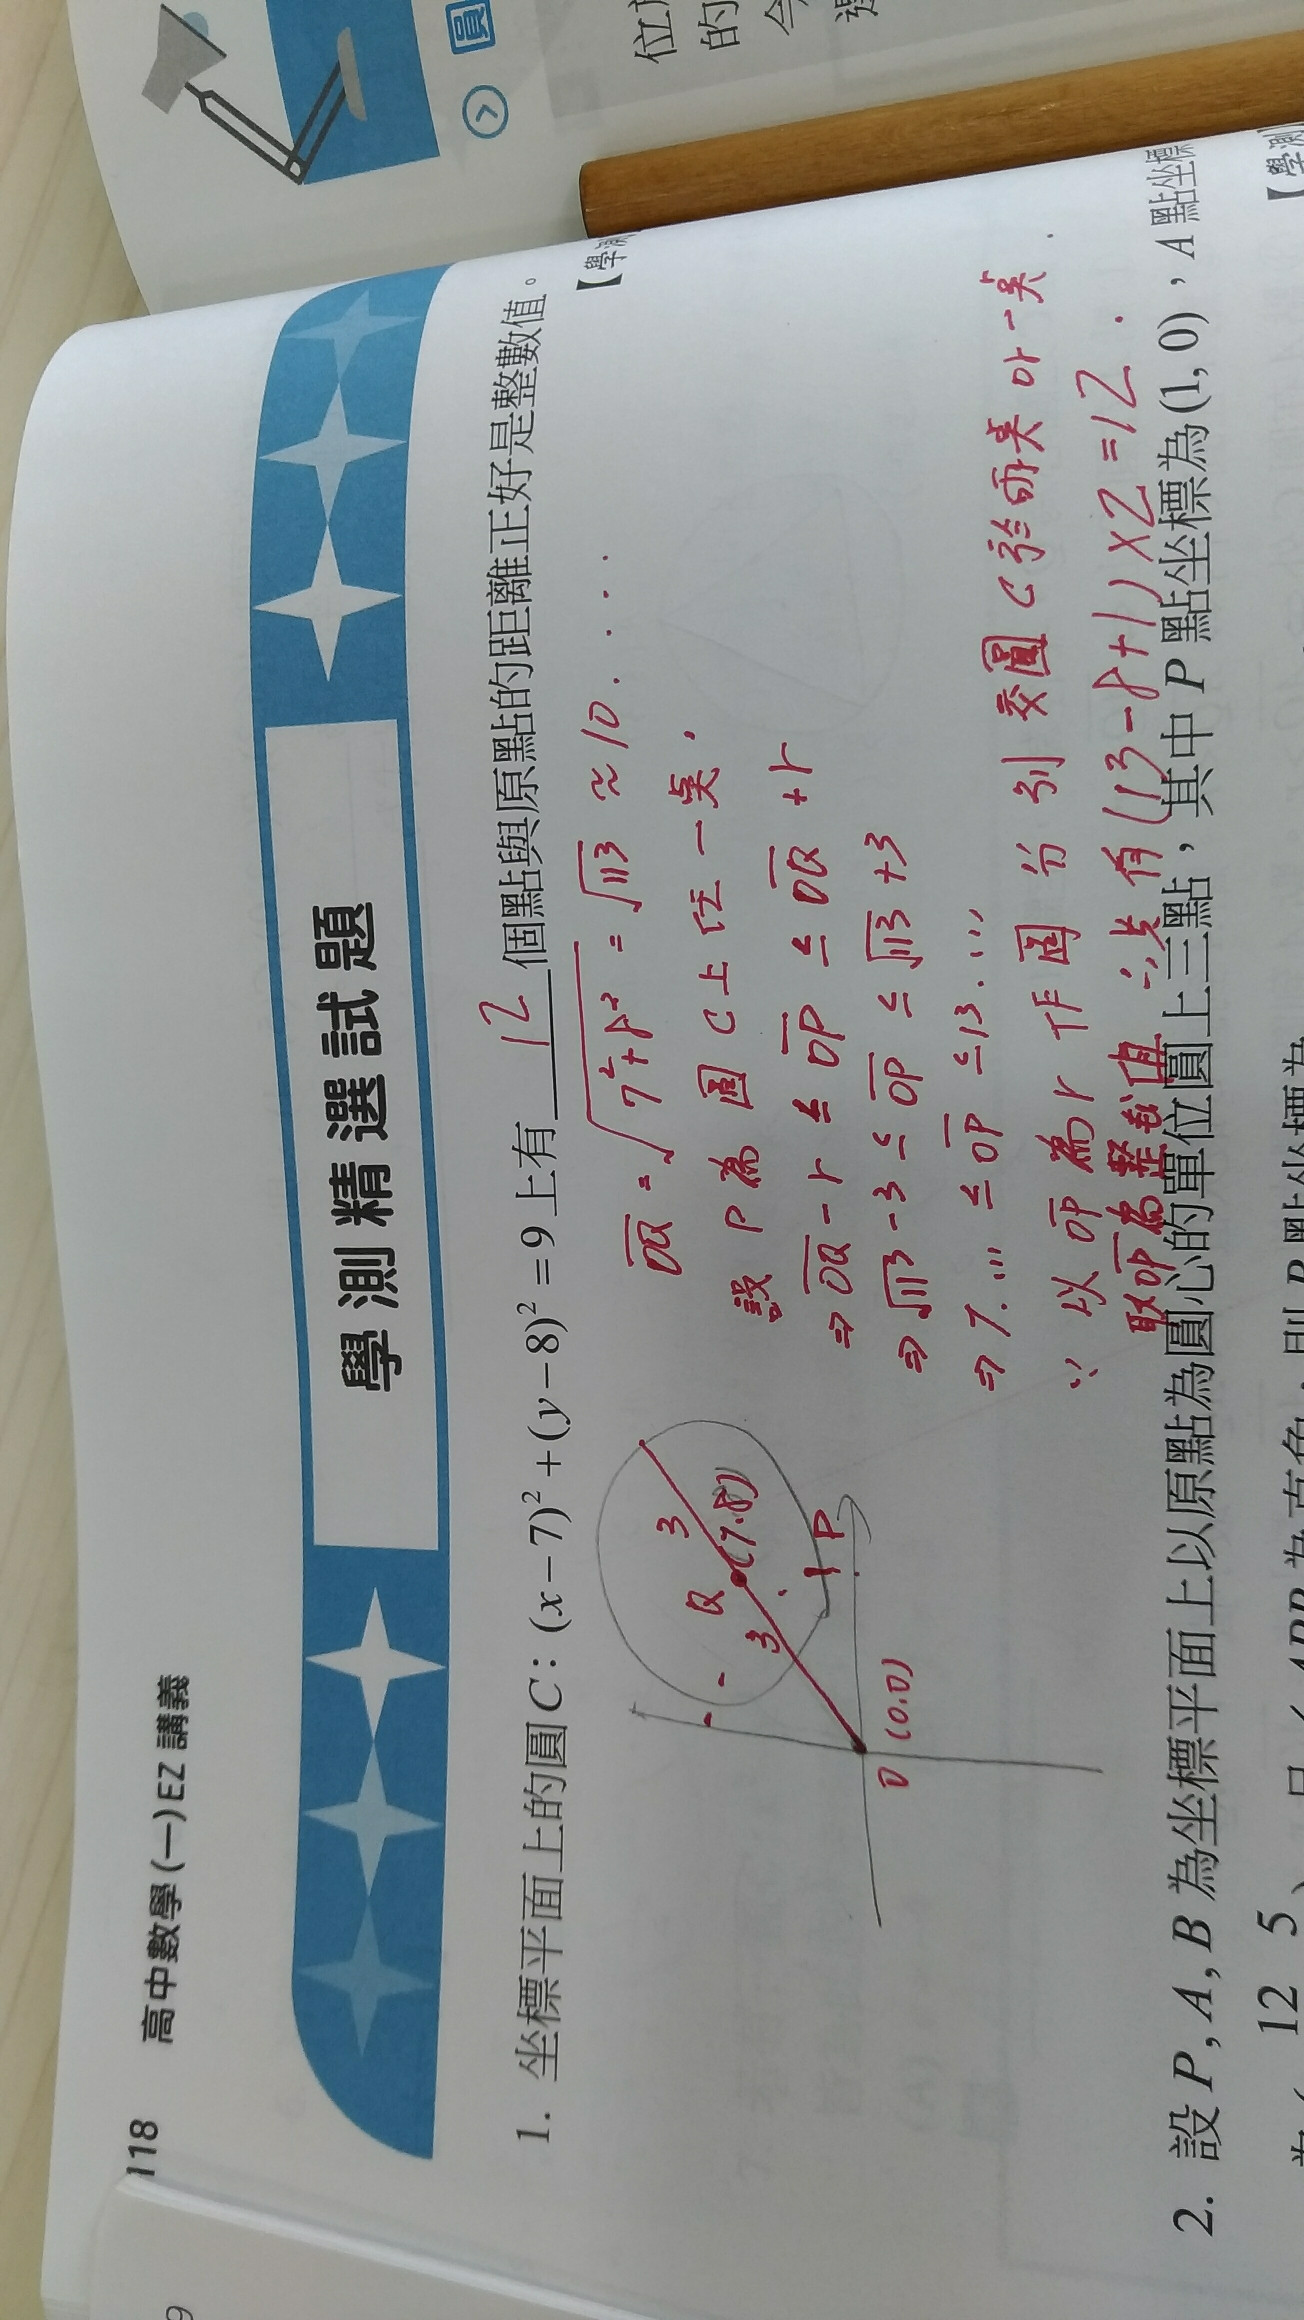 118 高中數學(一)EZ 講義
圓
學測精選試題
1. 坐標平面上的圓 C：(x－7)²＋(y－8)²＝9 上有 12 個點與原點的距離正好是整數值。
【學測
OQ = √7²+8² = √113 ≈ 10....
設 P 為圓 C 上任一點,
⇒ OQ - r ≤ OP ≤ OQ + r
⇒ √113 - 3 ≤ OP ≤ √113 + 3
⇒ 7.... ≤ OP ≤ 13....
∵ 以 OP 為 r 作圓分別交圓 C 於兩點或一點.
取 OP 為整數值 ∴共有 (13-8+1)×2=12.
3
Q
(7.8)
3
P
O (0.0)
2. 設 P, A, B 為坐標平面上以原點為圓心的單位圓上三點，其中 P 點坐標為 (1, 0)，A 點坐標
12 5
【學測